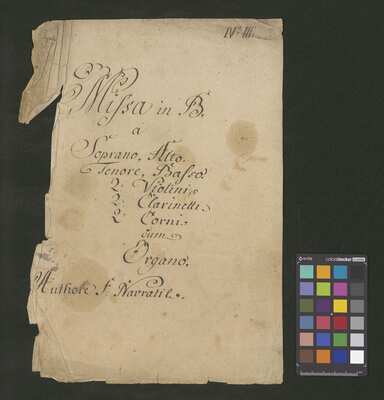 Missa in B.
a
Soprano, Alto.
Tenore, Basso
2. Violini.
2. Clarinetti.
2. Corni.
cum
Organo.
Authore F. Navratil.